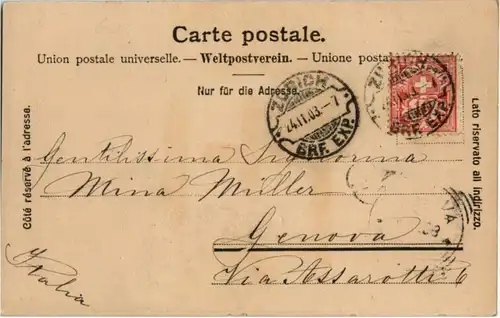 Carte postale.
Union postale universelle. — Weltpostverein. — Unione posta
Nur für die Adresse.
ZÜRICH
24.II.03.–7
BRF. EXP.
ZÜ
BRF. EXP.
Côté réservé à l'adresse.
Lato riservato all indirizzo.
Gentilissima Signorina
Mina Müller
Genova
Via Assarotti 6
Italia